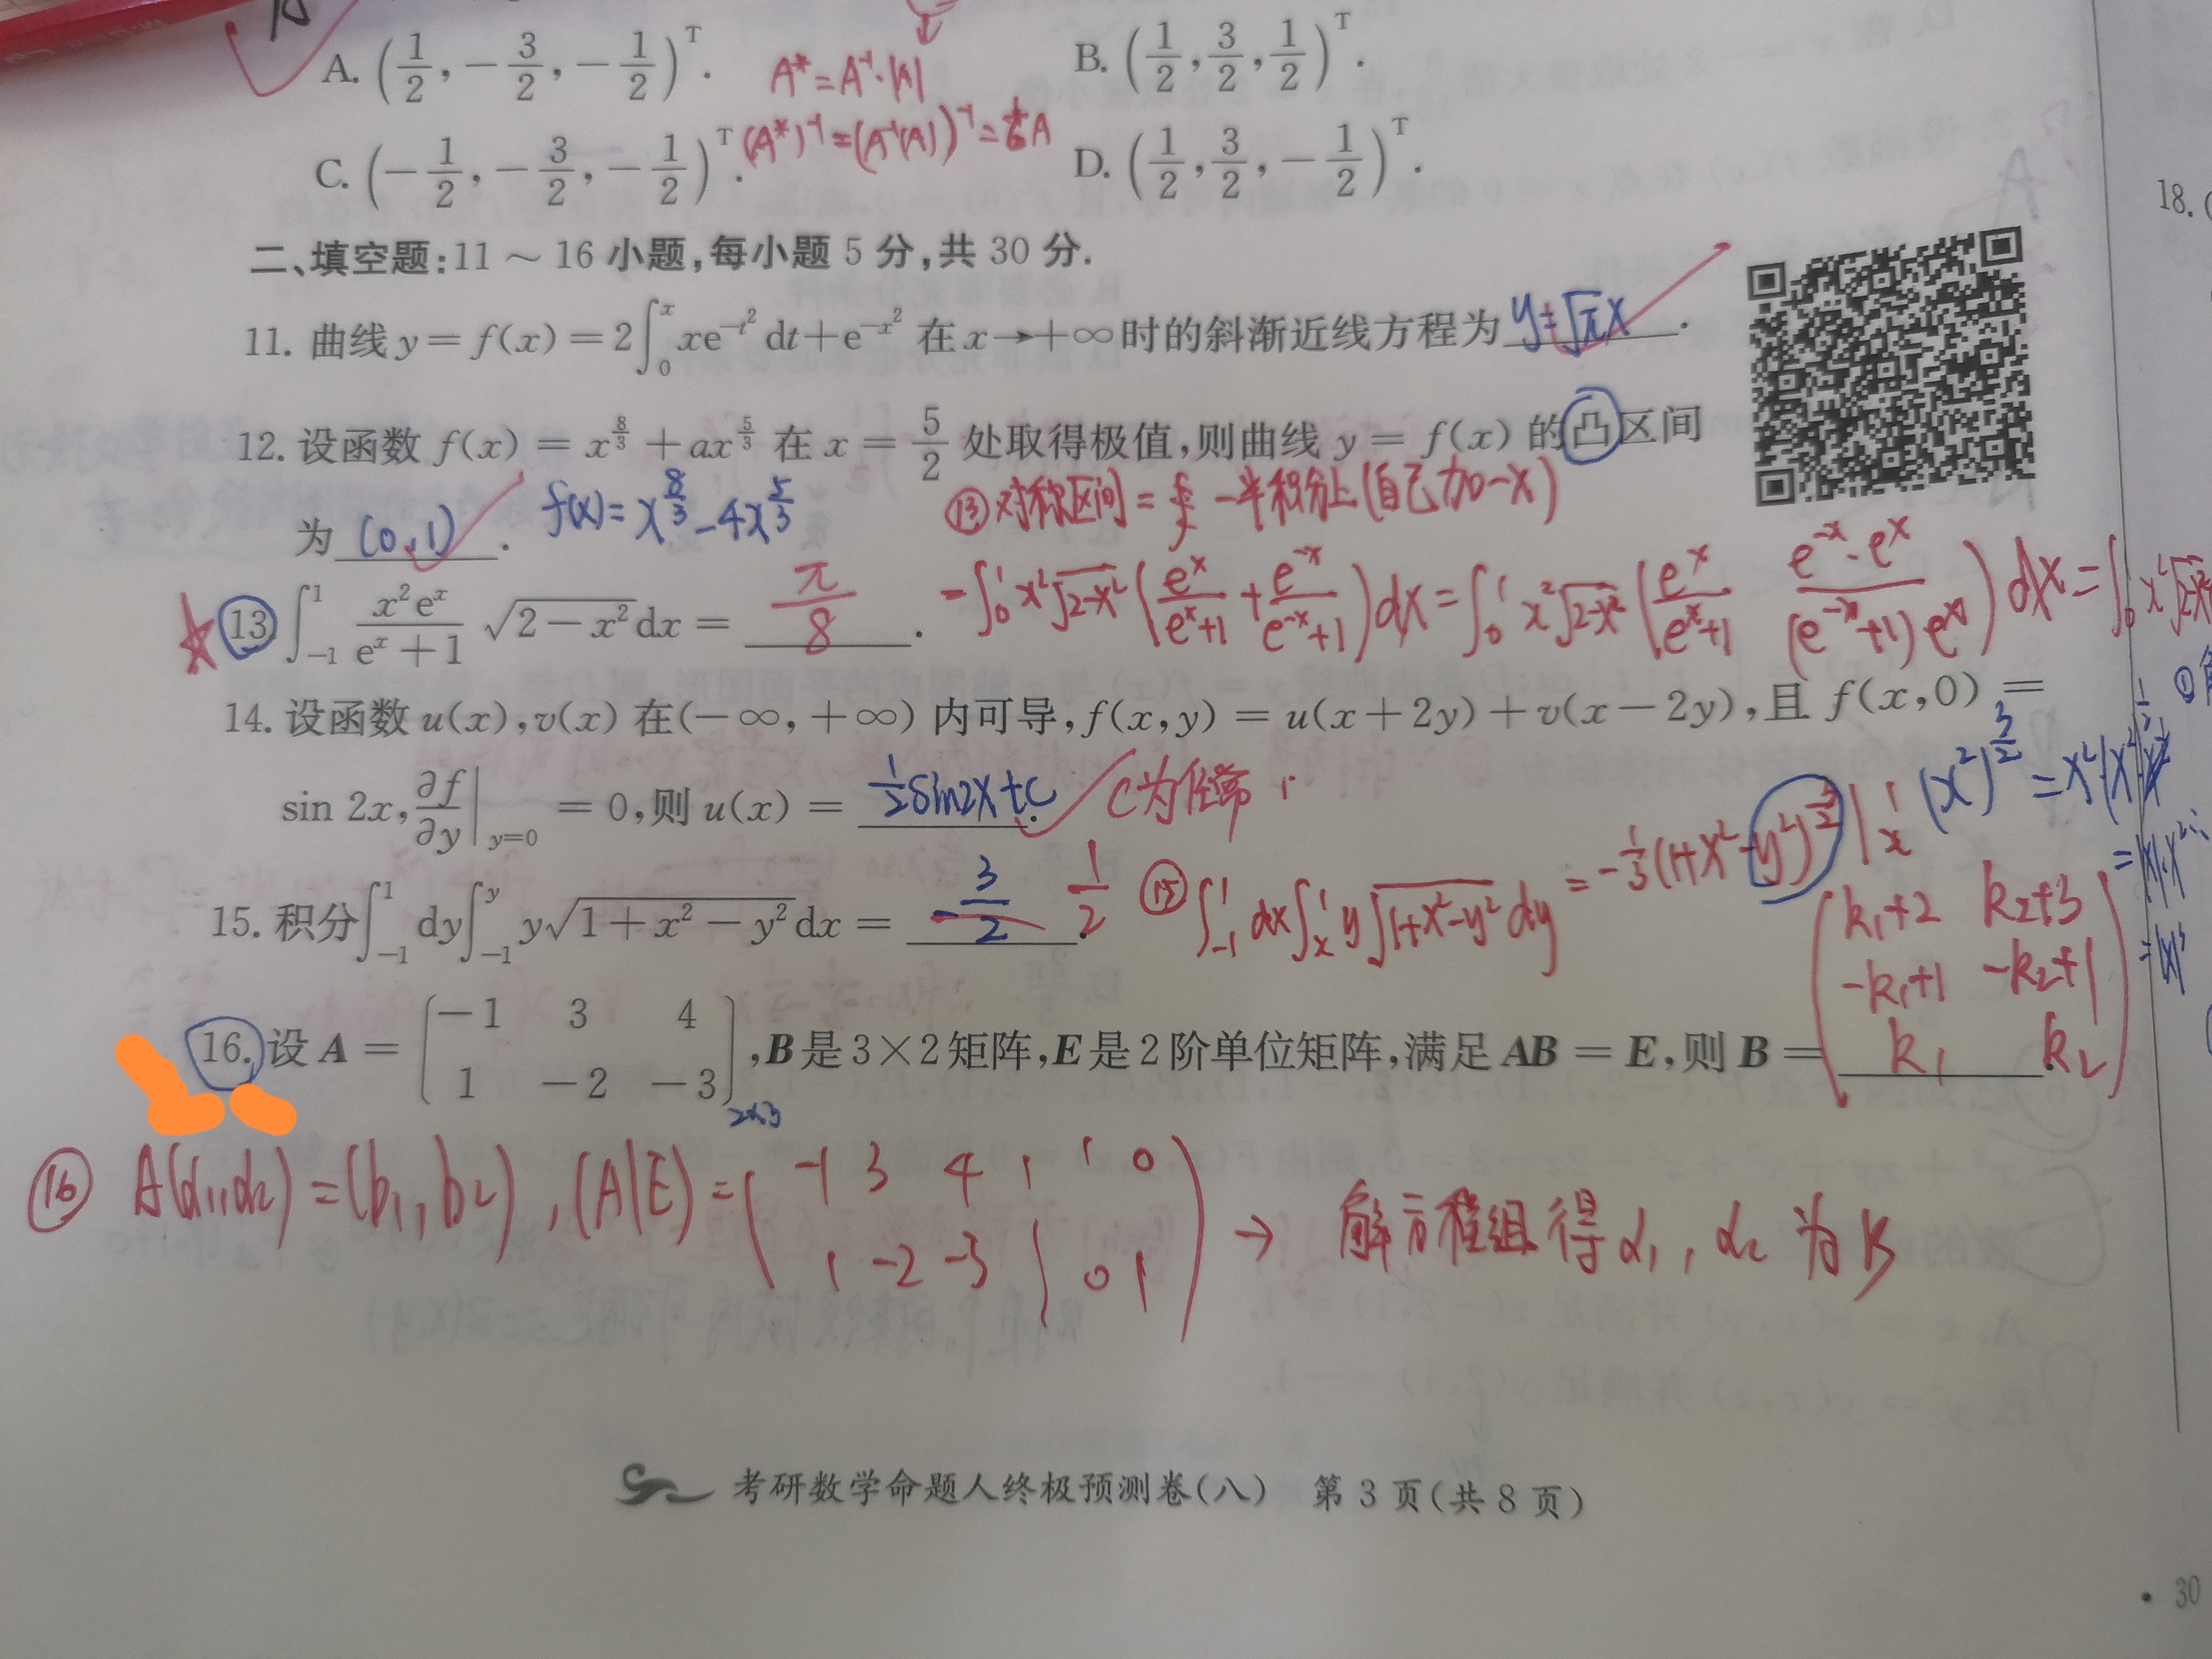 A. (1/2, -3/2, -1/2)ᵀ.
A* = A⁻¹·|A|
B. (1/2, 3/2, 1/2)ᵀ.
C. (-1/2, -3/2, -1/2)ᵀ.
(A*)⁻¹ = (A⁻¹|A|)⁻¹ = A
D. (1/2, 3/2, -1/2)ᵀ.
18. (
二、填空题:11 ~ 16 小题,每小题 5 分,共 30 分.
11. 曲线 y = f(x) = 2∫₀ˣ xe^(-t²) dt + e^(-x²) 在 x→+∞ 时的斜渐近线方程为 y=√π x .
12. 设函数 f(x) = x^(8/3) + ax^(5/3) 在 x = 5/2 处取得极值,则曲线 y = f(x) 的凸区间
⑬ 对称区间 = 一半积分上(自己加-x)
为 (0,1) . f(x) = x^(8/3) - 4x^(5/3)
13. ∫₋₁¹ x²eˣ/(eˣ+1) √(2-x²) dx = π/8 .
= ∫₀¹ x²√(2-x²) (eˣ/(eˣ+1) + e⁻ˣ/(e⁻ˣ+1)) dx = ∫₀¹ x²√(2-x²) (eˣ/(eˣ+1) e⁻ˣ·eˣ/((e⁻ˣ+1)eˣ)) dx = ∫₀¹ x²√(2-x²)
14. 设函数 u(x),v(x) 在(-∞,+∞) 内可导,f(x,y) = u(x+2y)+v(x-2y),且 f(x,0) =
sin 2x, ∂f/∂y|y=0 = 0,则 u(x) = 1/2 sin2x+c . C为任常
15. 积分∫₋₁¹ dy∫₋₁ʸ y√(1+x²-y²) dx = -3/2 . 1/2
⑮ ∫₋₁¹ dx∫ₓ¹ y√(1+x²-y²) dy = -1/3 (1+x²-y²)^(3/2) |ₓ¹
(x²)^(3/2) = x²·
= |x|·x²
= |x|³
16. 设 A = (-1 3 4; 1 -2 -3)2×3 ,B 是 3×2 矩阵,E 是 2 阶单位矩阵,满足 AB = E,则 B = (k₁+2 k₂+3; -k₁+1 -k₂+1; k₁ k₂) .
⑯ A(α₁,α₂) = (b₁,b₂) , (A|E) = (-1 3 4 | 1 0; 1 -2 -3 | 0 1) → 解方程组得 α₁, α₂ 为 B
考研数学命题人终极预测卷(八) 第 3 页(共 8 页)
· 30